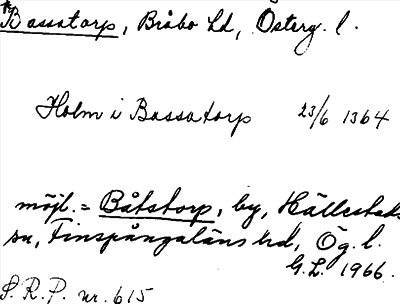 *Bassatorp, Bråbo hd, Österg. l.
Holm i Bassatorp 23/6 1364
möjl. = Båtstorp, by, Hällestads
sn, Finspångaläns hd, Ög. l.
G.L. 1966.
S.R.P. nr. 615